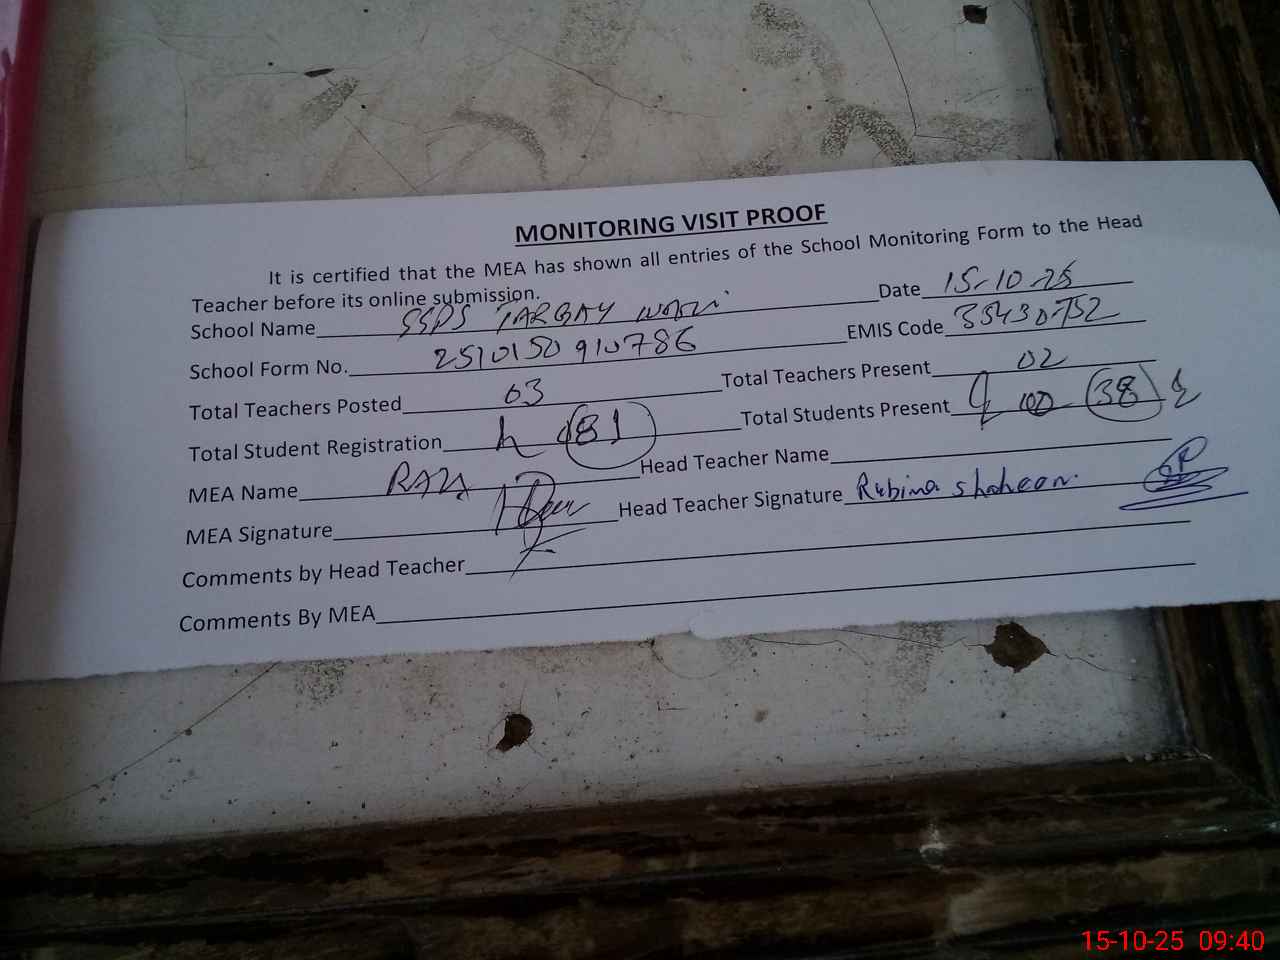 MONITORING VISIT PROOF
It is certified that the MEA has shown all entries of the School Monitoring Form to the Head
Teacher before its online submission.
School Name SSPS TARGAY Date 15-10-25
School Form No. 2510150910786 EMIS Code 35430752
Total Teachers Posted 03 Total Teachers Present 02
Total Student Registration 81 Total Students Present 38
MEA Name RAZA Head Teacher Name
MEA Signature Head Teacher Signature Rubina shaheen.
Comments by Head Teacher
Comments By MEA
15-10-25 09:40